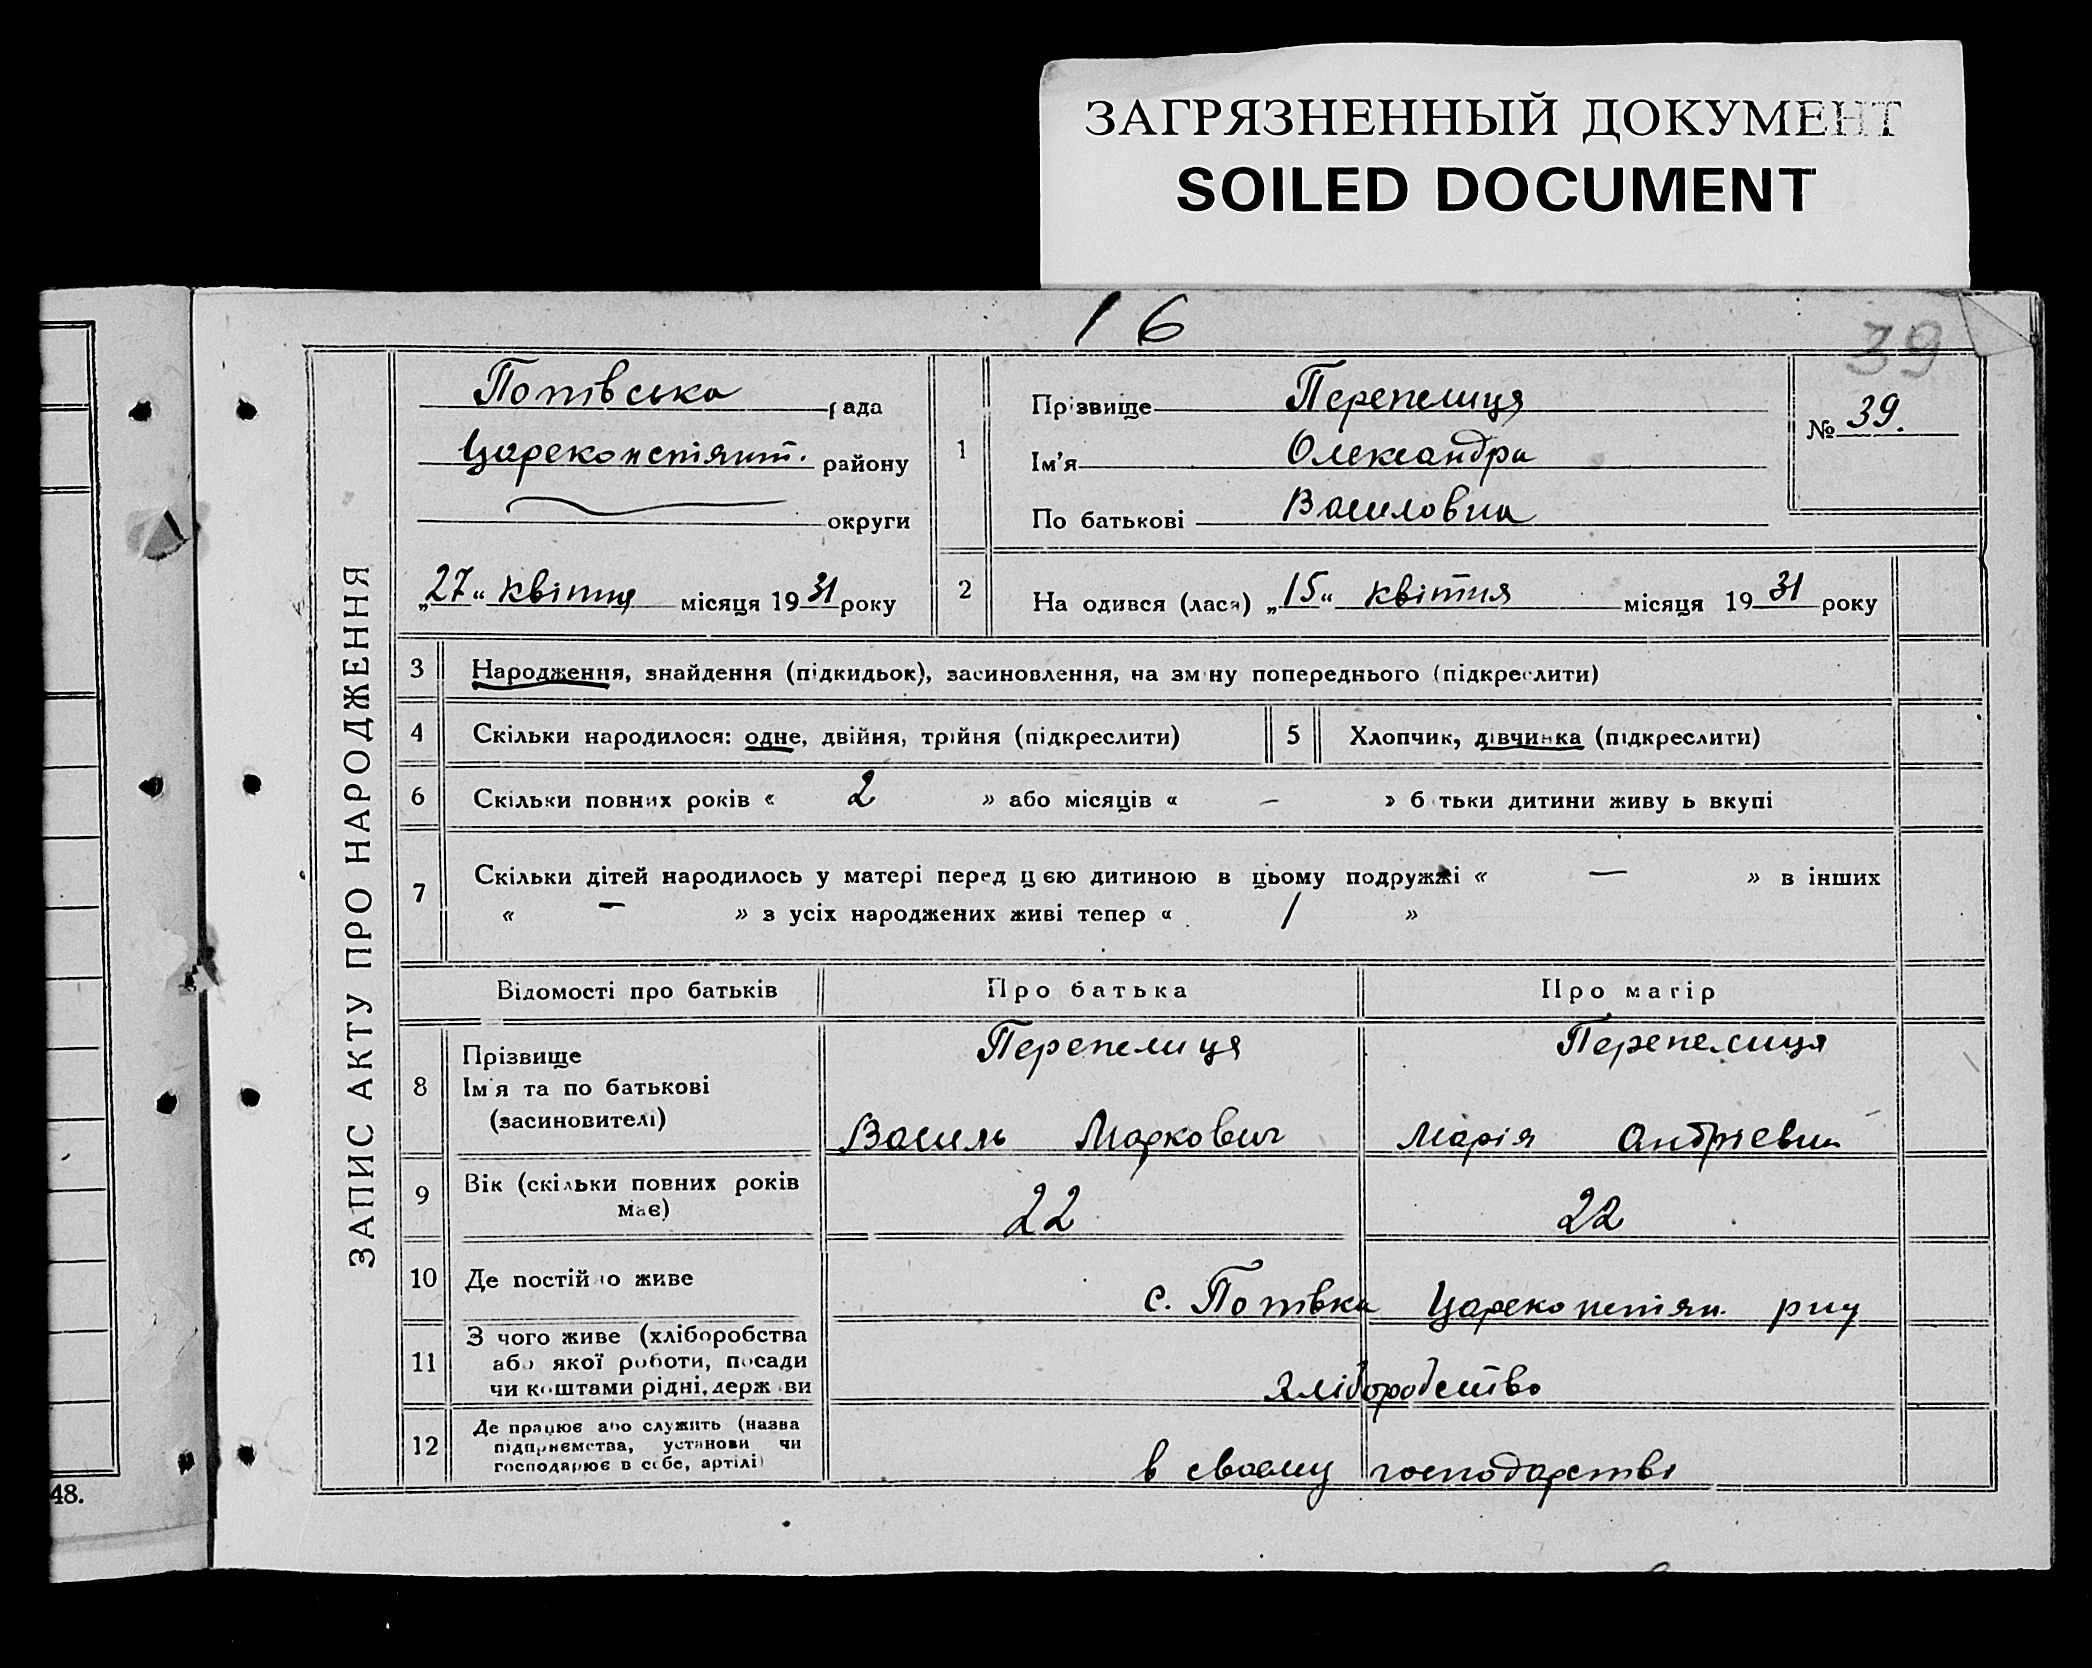 ЗАГРЯЗНЕННЫЙ ДОКУМЕНТ
SOILED DOCUMENT
16
39
ЗАПИС АКТУ ПРО НАРОДЖЕННЯ
Потівська рада
Цареконстянт. району
округи
„27“ квітня місяця 1931 року
1
Прізвище Перепелиця
Ім'я Олександра
По батькові Василовна
№ 39.
2 На одився (лася) „15“ квітня місяця 1931 року
3 Народження, знайдення (підкидьок), засиновлення, на зміну попереднього (підкреслити)
4 Скільки народилося: одне, двійня, трійня (підкреслити) 5 Хлопчик, дівчинка (підкреслити)
6 Скільки повних років « 2 » або місяців « – » б тьки дитини живу ь вкупі
7 Скільки дітей народилось у матері перед цією дитиною в цьому подружжі « — » в інших
« – » з усіх народжених живі тепер « 1 »
Відомості про батьків Про батька Про матір
8 Прізвище
Ім'я та по батькові
(засиновителі)
Перепелиця Перепелиця
Василь Маркович Марія Андріевна
9 Вік (скільки повних років має) 22 22
10 Де постійно живе с. Потівка Цареконстян. р-ну
11 З чого живе (хліборобства
або якої роботи, посади
чи коштами рідні, держ ви
хліборобство
12 Де працює або служить (назва
підприємства, установи чи
господарює в себе, артілі)
в своему господарстві
48.